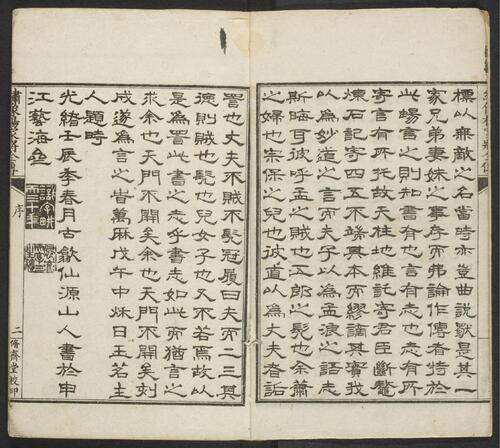 標以無敵之名當時亦豈曲說歟是其一
家兄弟妻妹之事序而弗論作傳者特於
此暢言之則知書有也言有志也志有所
寄言有所托故天柱地維託寄君臣斷鼇
煉石記將四五不端其本而繆謫其實我
以為妙道之言而夫子以為孟浪之語志
斯晦可彼呼孟之賊也五郎之髡也余蕭
之婦也宗保之兒也彼直以為丈夫者詬
詈也丈夫不賊不髡冠履曰夫而二三其
德則賊也髡也兒女子也又不若焉故以
是為詈此書之志乎書志如此而猶言之
求余也天門不開矣余也天門不開矣刻
成遂為言之旹萬厤戊午中秋日玉茗主
人題時
光緒壬辰季春月古歙仙源山人書於申
江藝海
序
二
齋堂校印